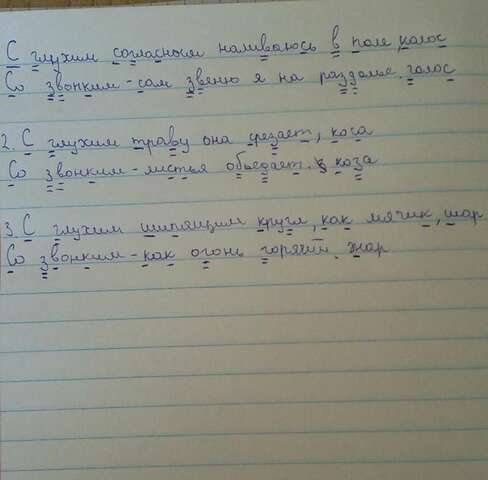 С глухим согласным наливаюсь в поле, колос
Со звонким - сам звеню я на раздолье. голос
2. С глухим траву она срезает, коса
Со звонким - листья объедает. коза
3. С глухим шипящим кругл, как мячик, шар
Со звонким - как огонь горячий. жар